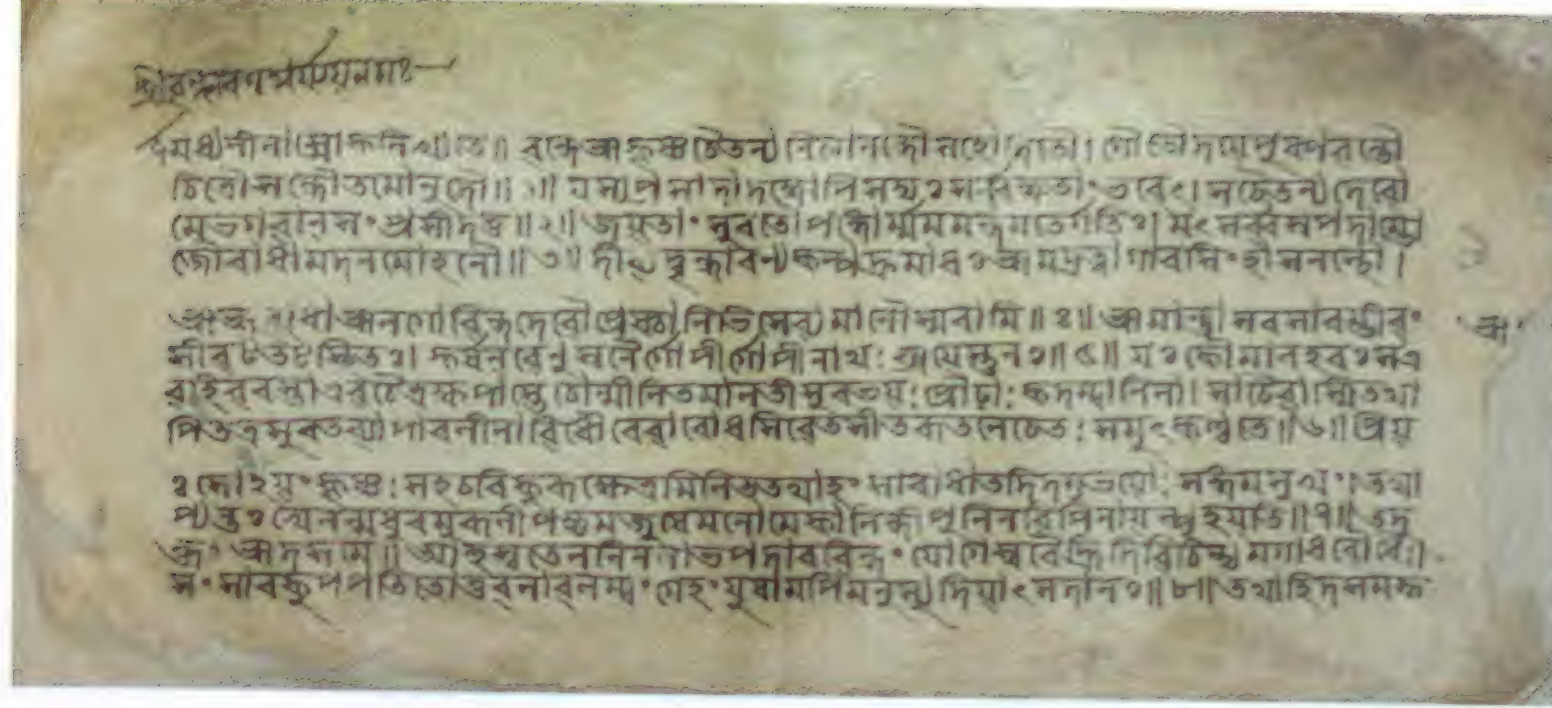 মধ্যলীলাশ্লোকলিখ্যতে॥ বন্দে শ্রীকৃষ্ণচৈতন্য নিত্যানন্দৌ সহোদিতৌ। গৌড়োদয়ে পুষ্পবন্তৌ
চিত্রৌ শন্দৌ তমোনুদৌ॥১॥ যস্য প্রসাদাদজ্ঞোপি সদ্যঃ সর্ব্বজ্ঞতাং ব্রজেৎ। স চৈতন্যদেবো
মে ভগবান্ সংপ্রসীদতু॥২॥ জয়তাং সুরতৌ পঙ্গোর্মম মন্দমতের্গতিঃ। মৎসর্ব্বস্বপদাম্ভো
জৌ রাধামদনমোহনৌ॥৩॥ দীব্যদ্বৃন্দারণ্য কল্পদ্রুমাধঃ শ্রীমদ্রত্নাগারসিংহাসনস্থৌ।
শ্রীলগোবিন্দদেবৌ প্রেষ্ঠালীভিঃ সেব্যমানৌ স্মরামি॥৪॥ শ্রীমান্ রাসরসারম্ভী বং
শীবটতটস্থিতঃ। কর্ষন বেণুস্বনৈর্গোপীর্গোপীনাথঃ শ্রিয়েস্তু নঃ॥৫॥ যঃ কৌমারহরঃ স এ
ব হি বরস্তা এব চৈত্রক্ষপাস্তে চোন্মীলিতমালতীসুরভয়ঃ প্রৌঢ়াঃ কদম্বানিলাঃ। সা চৈবাস্মি তথা
পি তত্র সুরতব্যাপারলীলাবিধৌ রেবারোধসি বেতসীতরুতলে চেতঃ সমুৎকণ্ঠতে॥৬॥ প্রিয়
ঃ সোঽয়ং কৃষ্ণঃ সহচরি কুরুক্ষেত্রমিলিতস্তথাহং সা রাধা তদিদমুভয়োঃ সঙ্গমসুখং। তথা
প্যন্তঃখেলন্মধুরমুরলীপঞ্চমজুষে মনো মে কালিন্দীপুলিনবিপিনায় স্পৃহয়তি॥৭॥ তদু
ক্তং শ্রীদশমে॥ আহুশ্চ তে নলিননাভ পদারবিন্দং যোগেশ্বরৈর্হৃদি বিচিন্ত্যমগাধবোধৈঃ।
সংসারকূপপতিতোত্তরণাবলম্বং গেহং যুষামপি মনস্যুদিয়াৎ সদা নঃ॥৮॥ তথাহি দশমস্ক